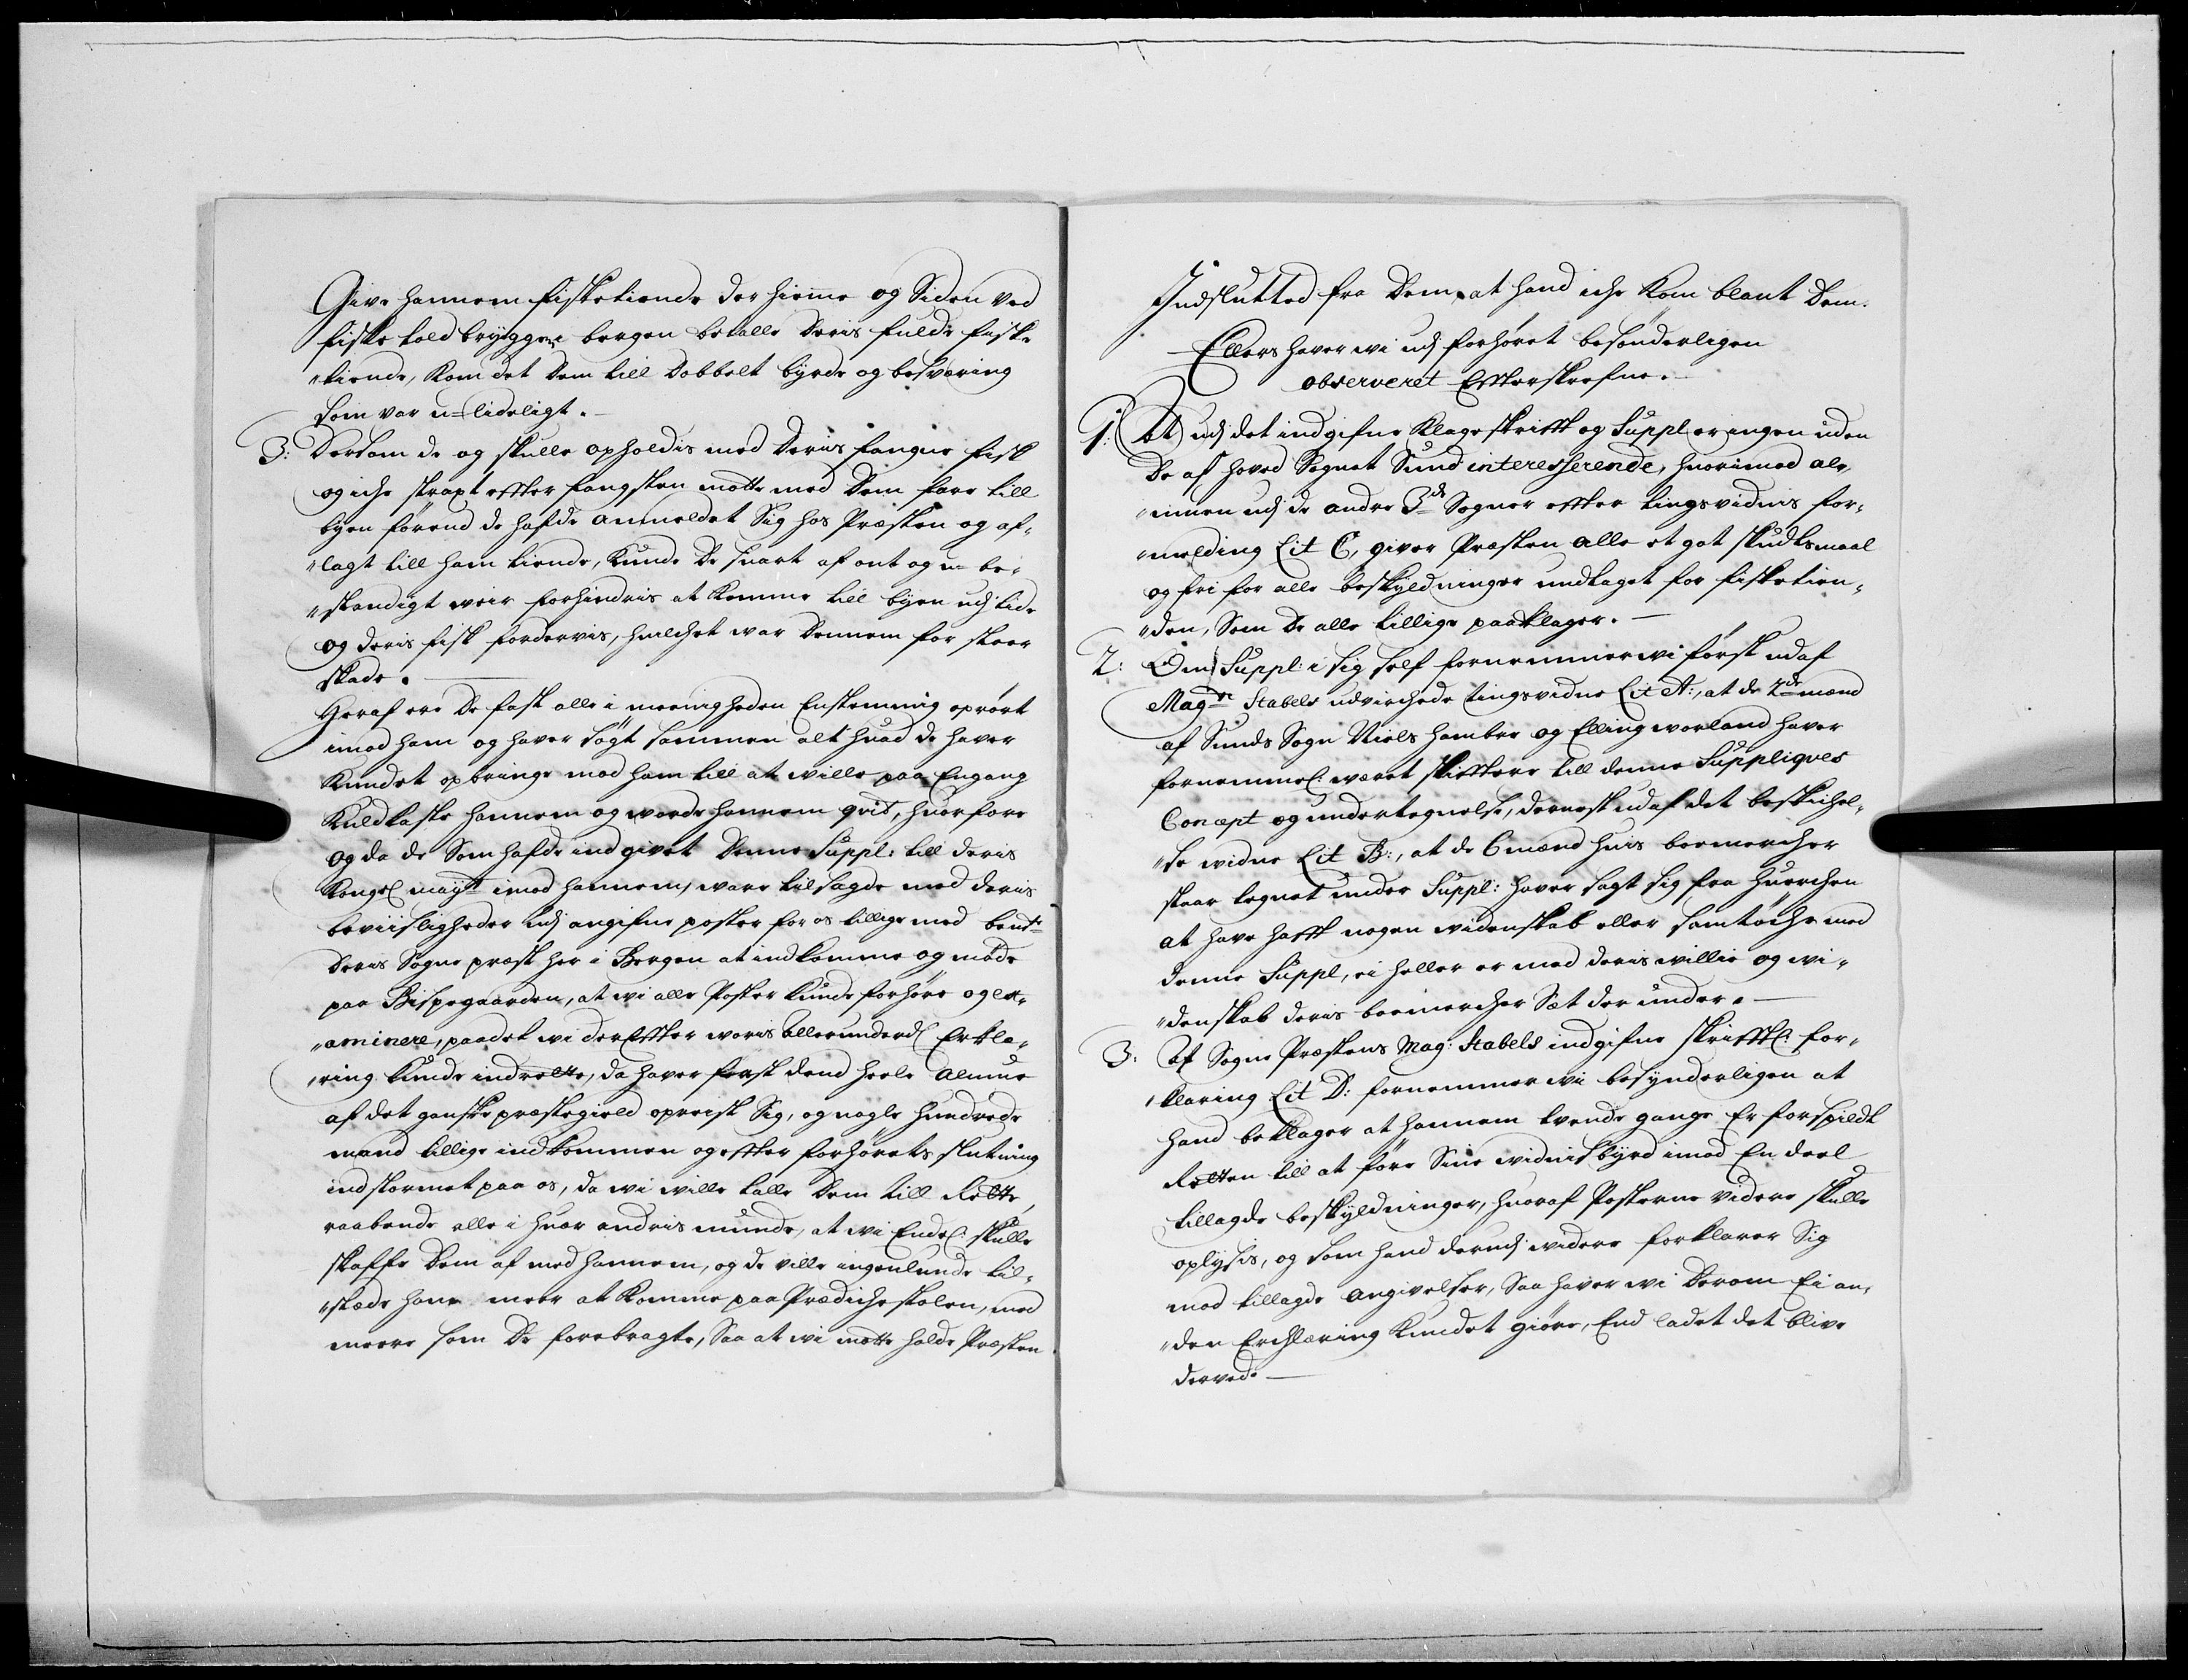 Give hannem fisketiende der hieme og Siden ved
fiske told bryggen i bergen betalle deris fulde fisk-
"tiende, kom det dem till dobbelt byrde og besværing
som var u-lideligt.
3: Dersom de og skulle opholdis med deris fangne fisk
og iche strax efter fangsten motte med dem fare till
byen förend de hafde anmeldet Sig hos Præsten og af-
"lagt till ham tiende, kunde de snart af ont og u-be-
"standigt weir forhindris at komme till byen udj tide
og deris fisk forderves, huilchet war dennem for stoer
skade.
Heraf ere de fast alle i meenigheden Enstemmig oprört
imod ham og hafver sögt sammen alt huad de haver
kundet opbringe mod ham till at wille paa Engang
kuldkaste hannem og worde hannem qvit, huorfore
og da de som hafde indgivet denne Suppl: till deris
Kongel mayt imod hannem, ware tilsagde med deris
beviisligheder udj angifne poster for os tillige med bemte
deris Sogne præst her i Bergen at indkomme og möde
paa Bispegaarden, at wi alle Poster kunde forhöre og ex-
"aminere, paadet wi derefter woris allerunderd Erklæ-
"ring kunde indrette, da haver fast dend heele almue
af det gandske præstegield opreist Sig, og nogle hundrede
mand tillige indkommen og efter forhörets slutning
indstormet paa os, da wi wille talle dem till Rette,
raabende alle i huer andris munde, at wi Endel: skulle
skaffe dem af med hannem, og de ville ingenlunde til-
"stæde hans meer at komme paa Prædichestolen, med
meere som de forebragte, Saa at wi motte holde Præsten
Indslutted fra dem, at hand iche kom blant dem.
Ellers haver wi udj forhöret besönderligen
observeret Efterskrefne.
1: At udj det indgifne klageskrifft og Suppl er ingen uden
de af hoved Sognet Sund interesserende, huorimod al-
"muen udj de andre 3de Sogner efter tingsvidnis for-
"melding Lit C, giver Præsten alle et got skudtsmaal
og fri for alle beskyldninger undtaget for fisketien-
"den, Som de alle tillige paaklager.
2: Om Suppl: i sig self fornemmer wi först udaf
Magdr Stabels udvirchede tingsvidne Lit A:, at de 2de mænd
af Sunds Sogn Niels hambre og Elling worland haver
fornemmel: weret skifftere till denne Suppliqves
Concept og undertegnelse, dernest udaf det beskichel-
"se widne Lit B:, at de 6 mænd huis boemercher
staar tegnet under Suppl: haver sagt sig fra huerchen
at have hafft nogen widenskab eller samtöche med
denne Suppl, ei heller er med deris willie og wi-
"denskab deris boemercher Sæt der under.
3: Af Sogne Præstens Mag: Stabels indgifne skrifftl: for-
"klaring Lit D: fornemmer wi besynderligen at
hand beklager at hannem tvende gange Er forspildt
Retten till at före Sine widnisbyrd imod En deel
tillagde beskyldninger, huoraf Posterne videre skulle
oplysis, og som hand derudj widere forklarer Sig
mod tillagde angivelser, Saa haver wi derom Ei an-
"den Erchlæring kundet giöre, End ladet det blive
derved.